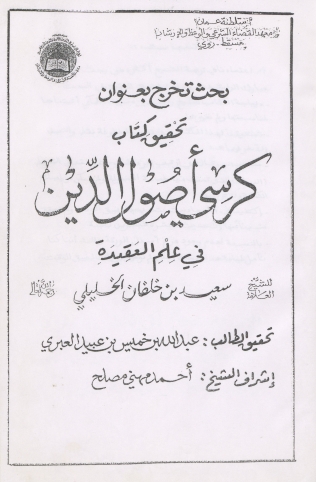 سلطنة عمان
معهد القضاء الشرعي والوعظ والإرشاد
مسقط - روي
بحث تخرج بعنوان
تحقيق كتاب
كرسي أصول الدين
في علم العقيدة
للشيخ العلامة سعيد بن خلفان الخليلي
تحقيق الطالب : عبدالله بن خميس بن عبيد العبري
إشراف الشيخ : أحمد مهني مصلح